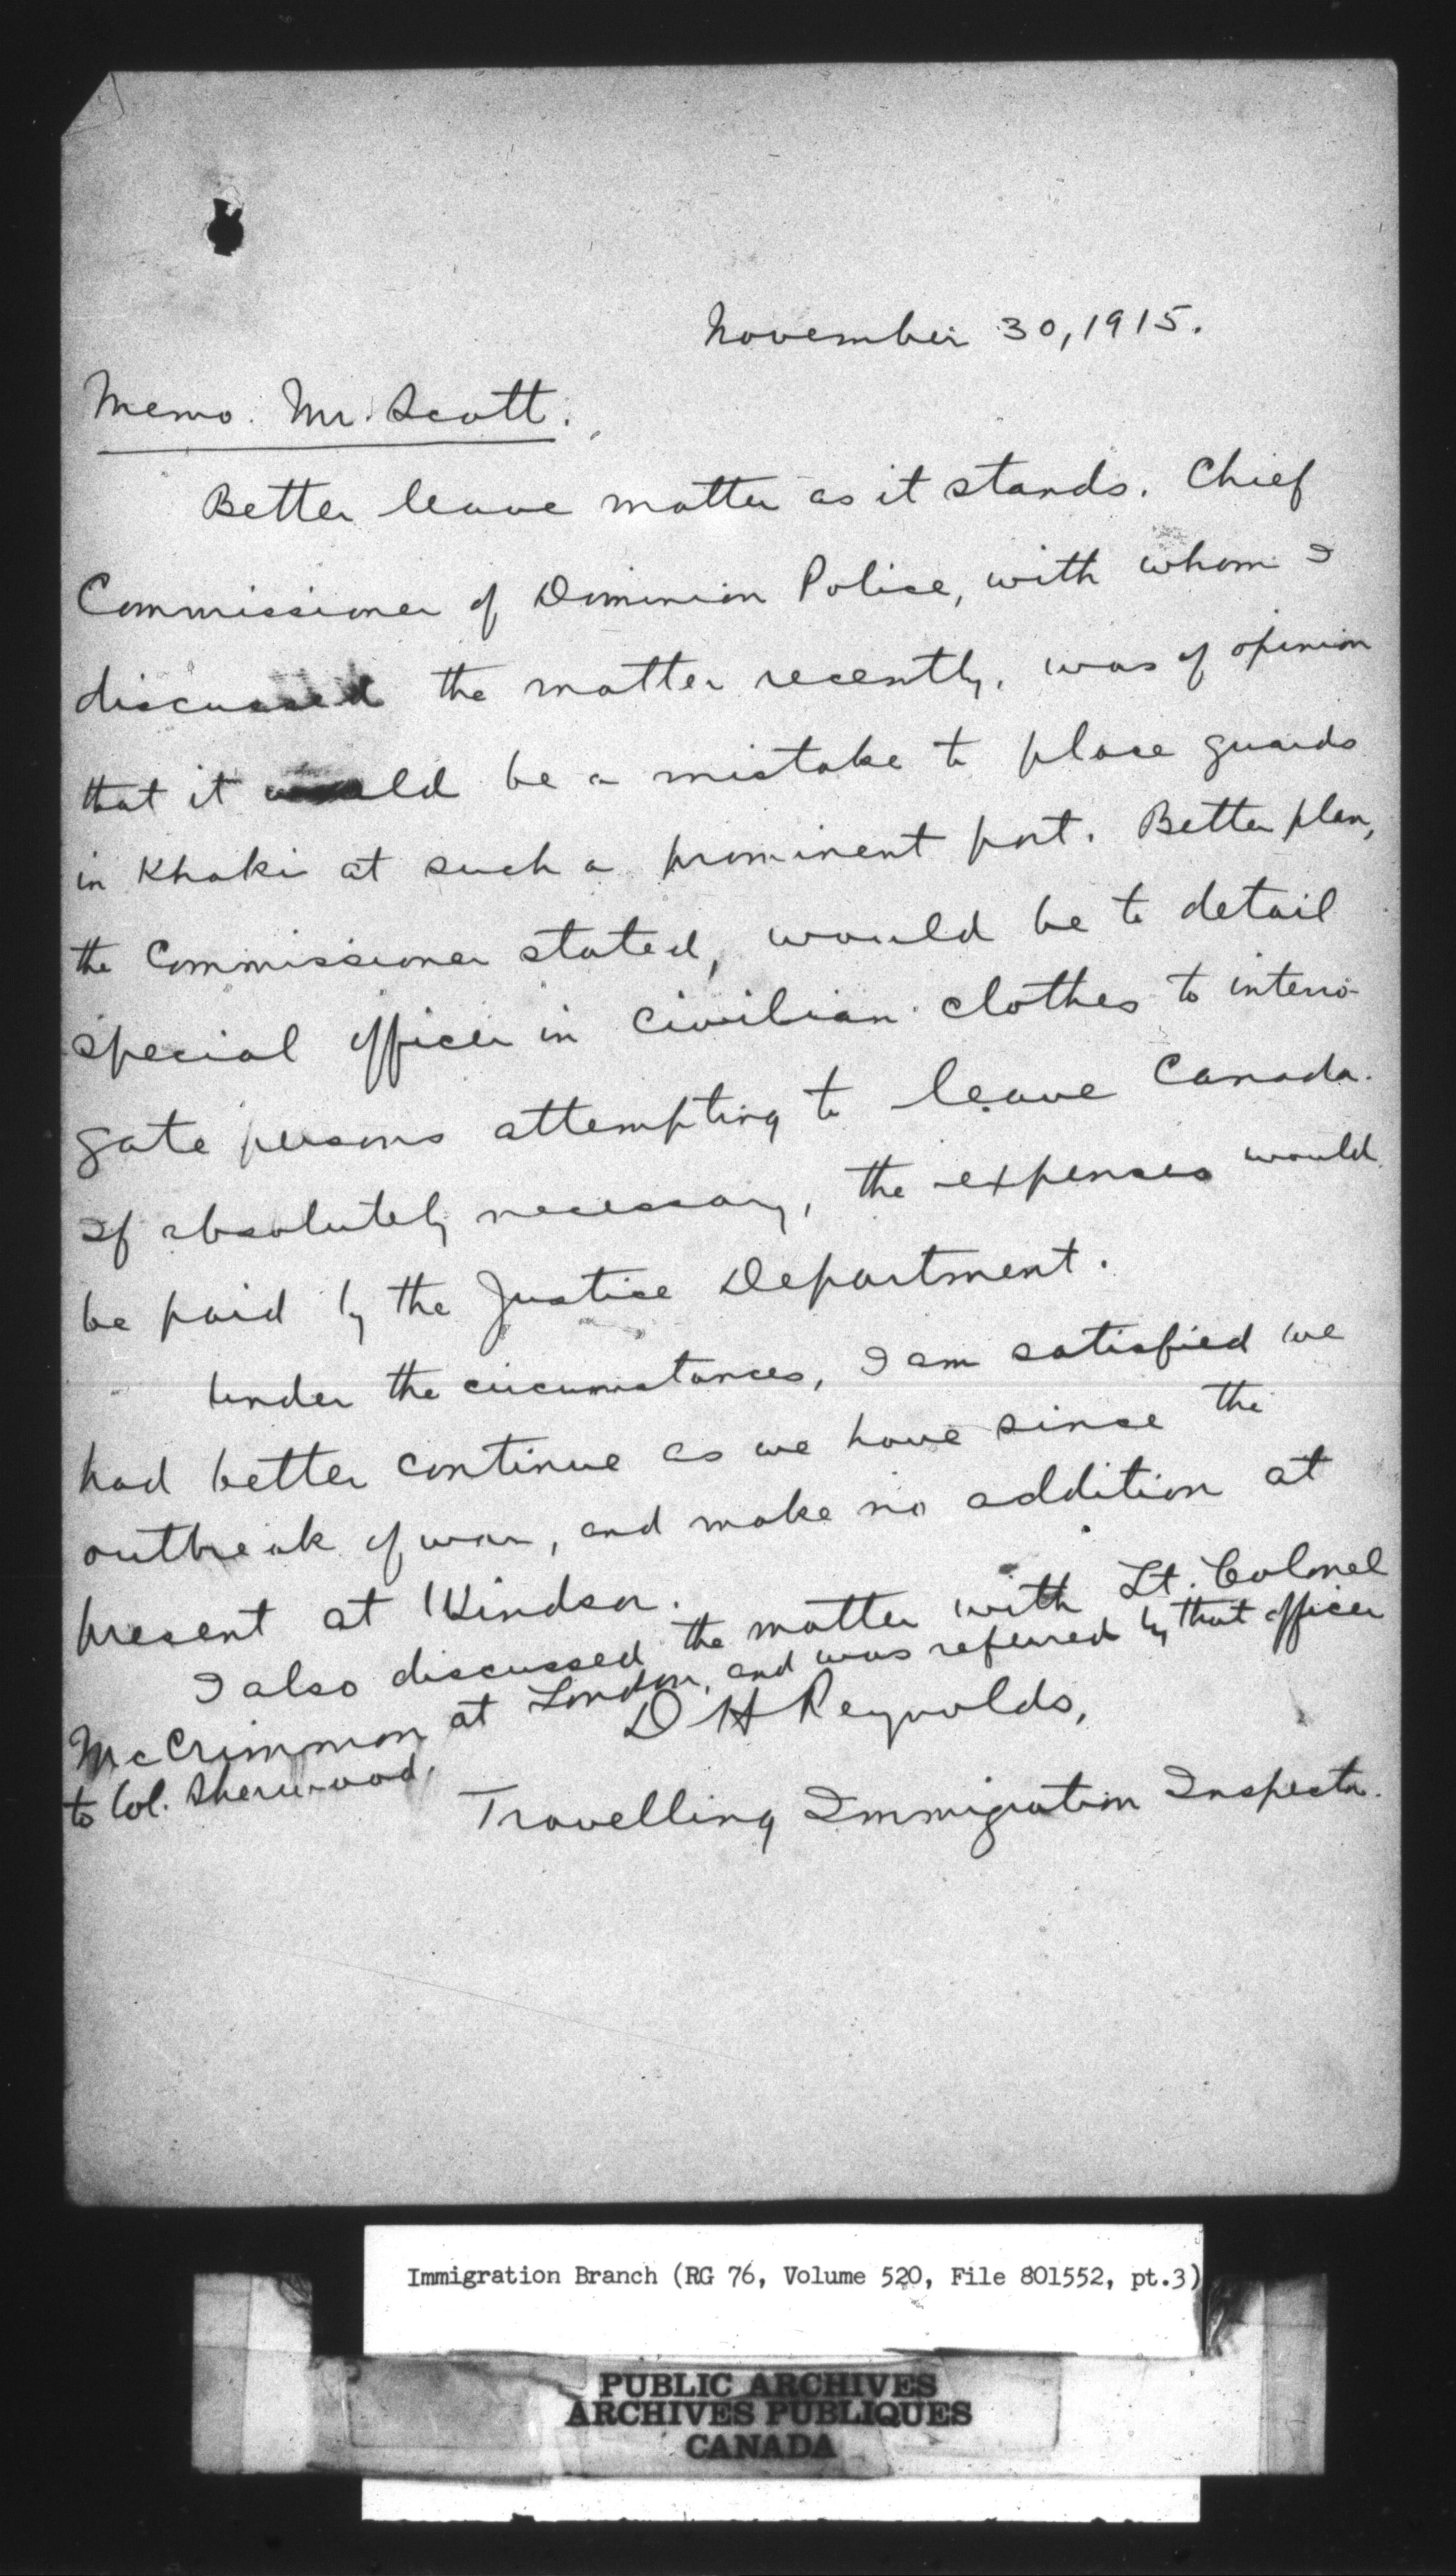 November 30, 1915.
Memo. Mr. Scott.
Better leave matter as it stands. Chief
Commissioner of Dominion Police, with whom I
discussed the matter recently, was of opinion
that it would be a mistake to place guards
in Khaki at such a prominent port. Better plan,
the Commissioner stated, would be to detail
special officer in civilian clothes to interro-
gate persons attempting to leave Canada.
If absolutely necessary, the expenses would
be paid by the Justice Department.
Under the circumstances, I am satisfied we
had better continue as we have since the
outbreak of war, and make no addition at
present at Windsor.
I also discussed the matter with Lt. Colonel
McCrimmon at London, and was referred by that officer
to Col. Sherwood.
D H Reynolds,
Travelling Immigration Inspector.
Immigration Branch (RG 76, Volume 520, File 801552, pt.3)
PUBLIC ARCHIVES
ARCHIVES PUBLIQUES
CANADA